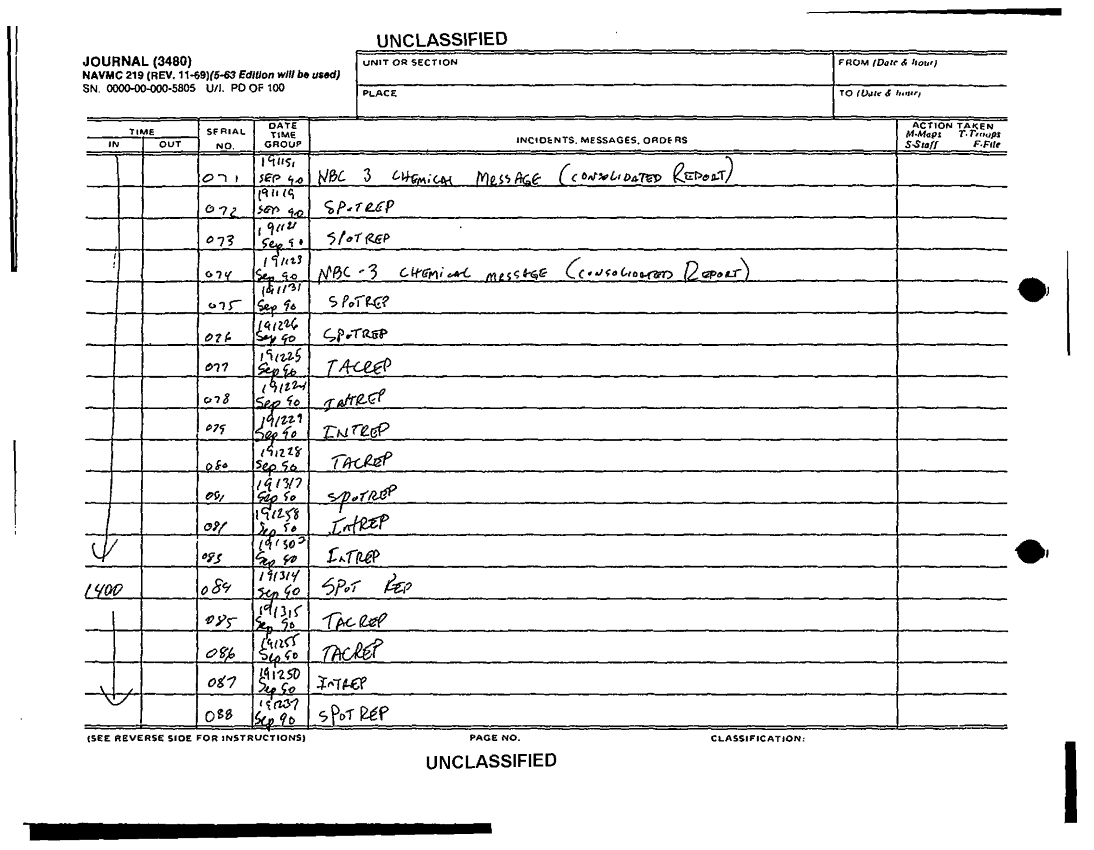 UNCLASSIFIED
JOURNAL (3480)
NAVMC 219 (REV. 11-69)(5-63 Edition will be used)
SN. 0000-00-000-5805 U/I. PD OF 100
UNIT OR SECTION
FROM (Date & hour)
PLACE
TO (Date & hour)
TIME
IN OUT
SERIAL NO.
DATE TIME GROUP
INCIDENTS, MESSAGES, ORDERS
ACTION TAKEN
M-Maps T-Troops
S-Staff F-File
071 SEP 90 NBC 3 CHEMICAL MESSAGE (CONSOLIDATED REPORT)
072 191119 SEP 90 SPOTREP
073 191121 Sep 90 SPOTREP
074 191123 Sep 90 NBC-3 CHEMICAL MESSAGE (CONSOLIDATED REPORT)
075 191131 Sep 90 SPOTREP
076 191226 Sep 90 SPOTREP
077 191225 Sep 90 TACREP
078 Sep 90 INTREP
079 Sep 90 INTREP
080 191228 Sep 90 TACREP
081 191317 Sep 90 SPOTREP
191258 Sep 90 INTREP
083 Sep 90 INTREP
1400 084 191314 Sep 90 SPOT REP
085 191315 Sep 90 TACREP
086 191255 Sep 90 TACREP
087 191250 Sep 90 INTREP
088 191237 Sep 90 SPOTREP
(SEE REVERSE SIDE FOR INSTRUCTIONS)
PAGE NO.
CLASSIFICATION:
UNCLASSIFIED